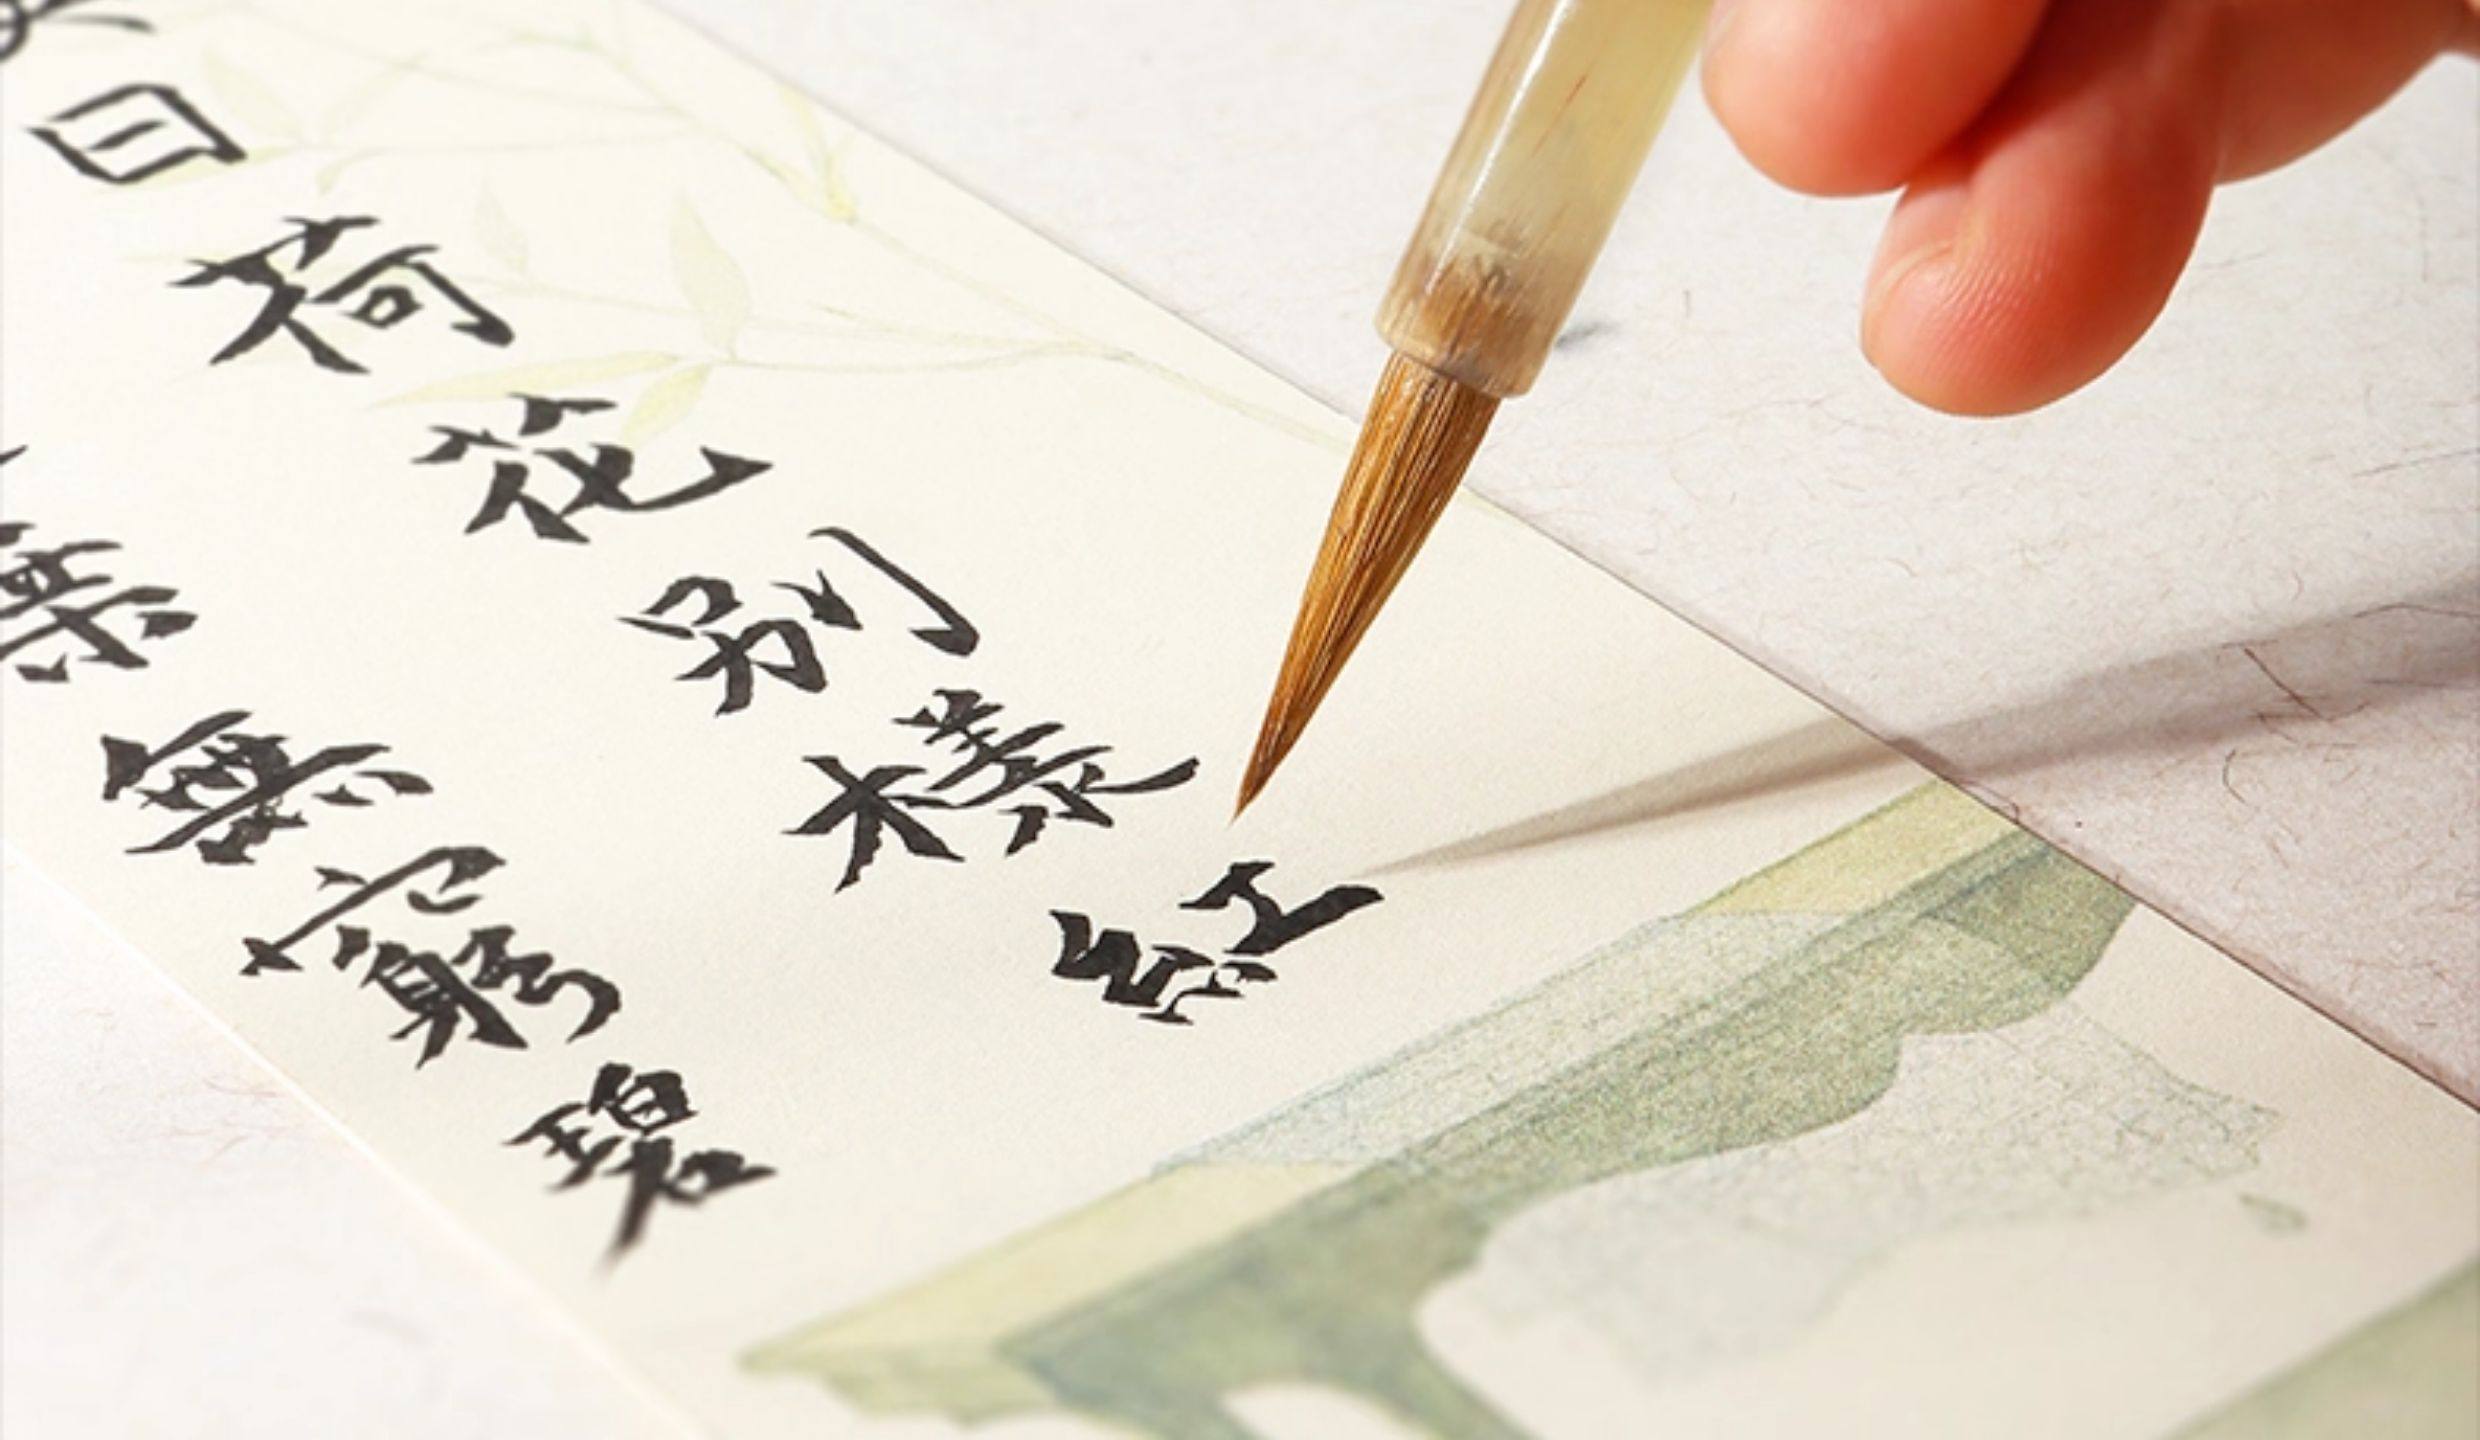 葉無窮碧
日荷花別樣紅